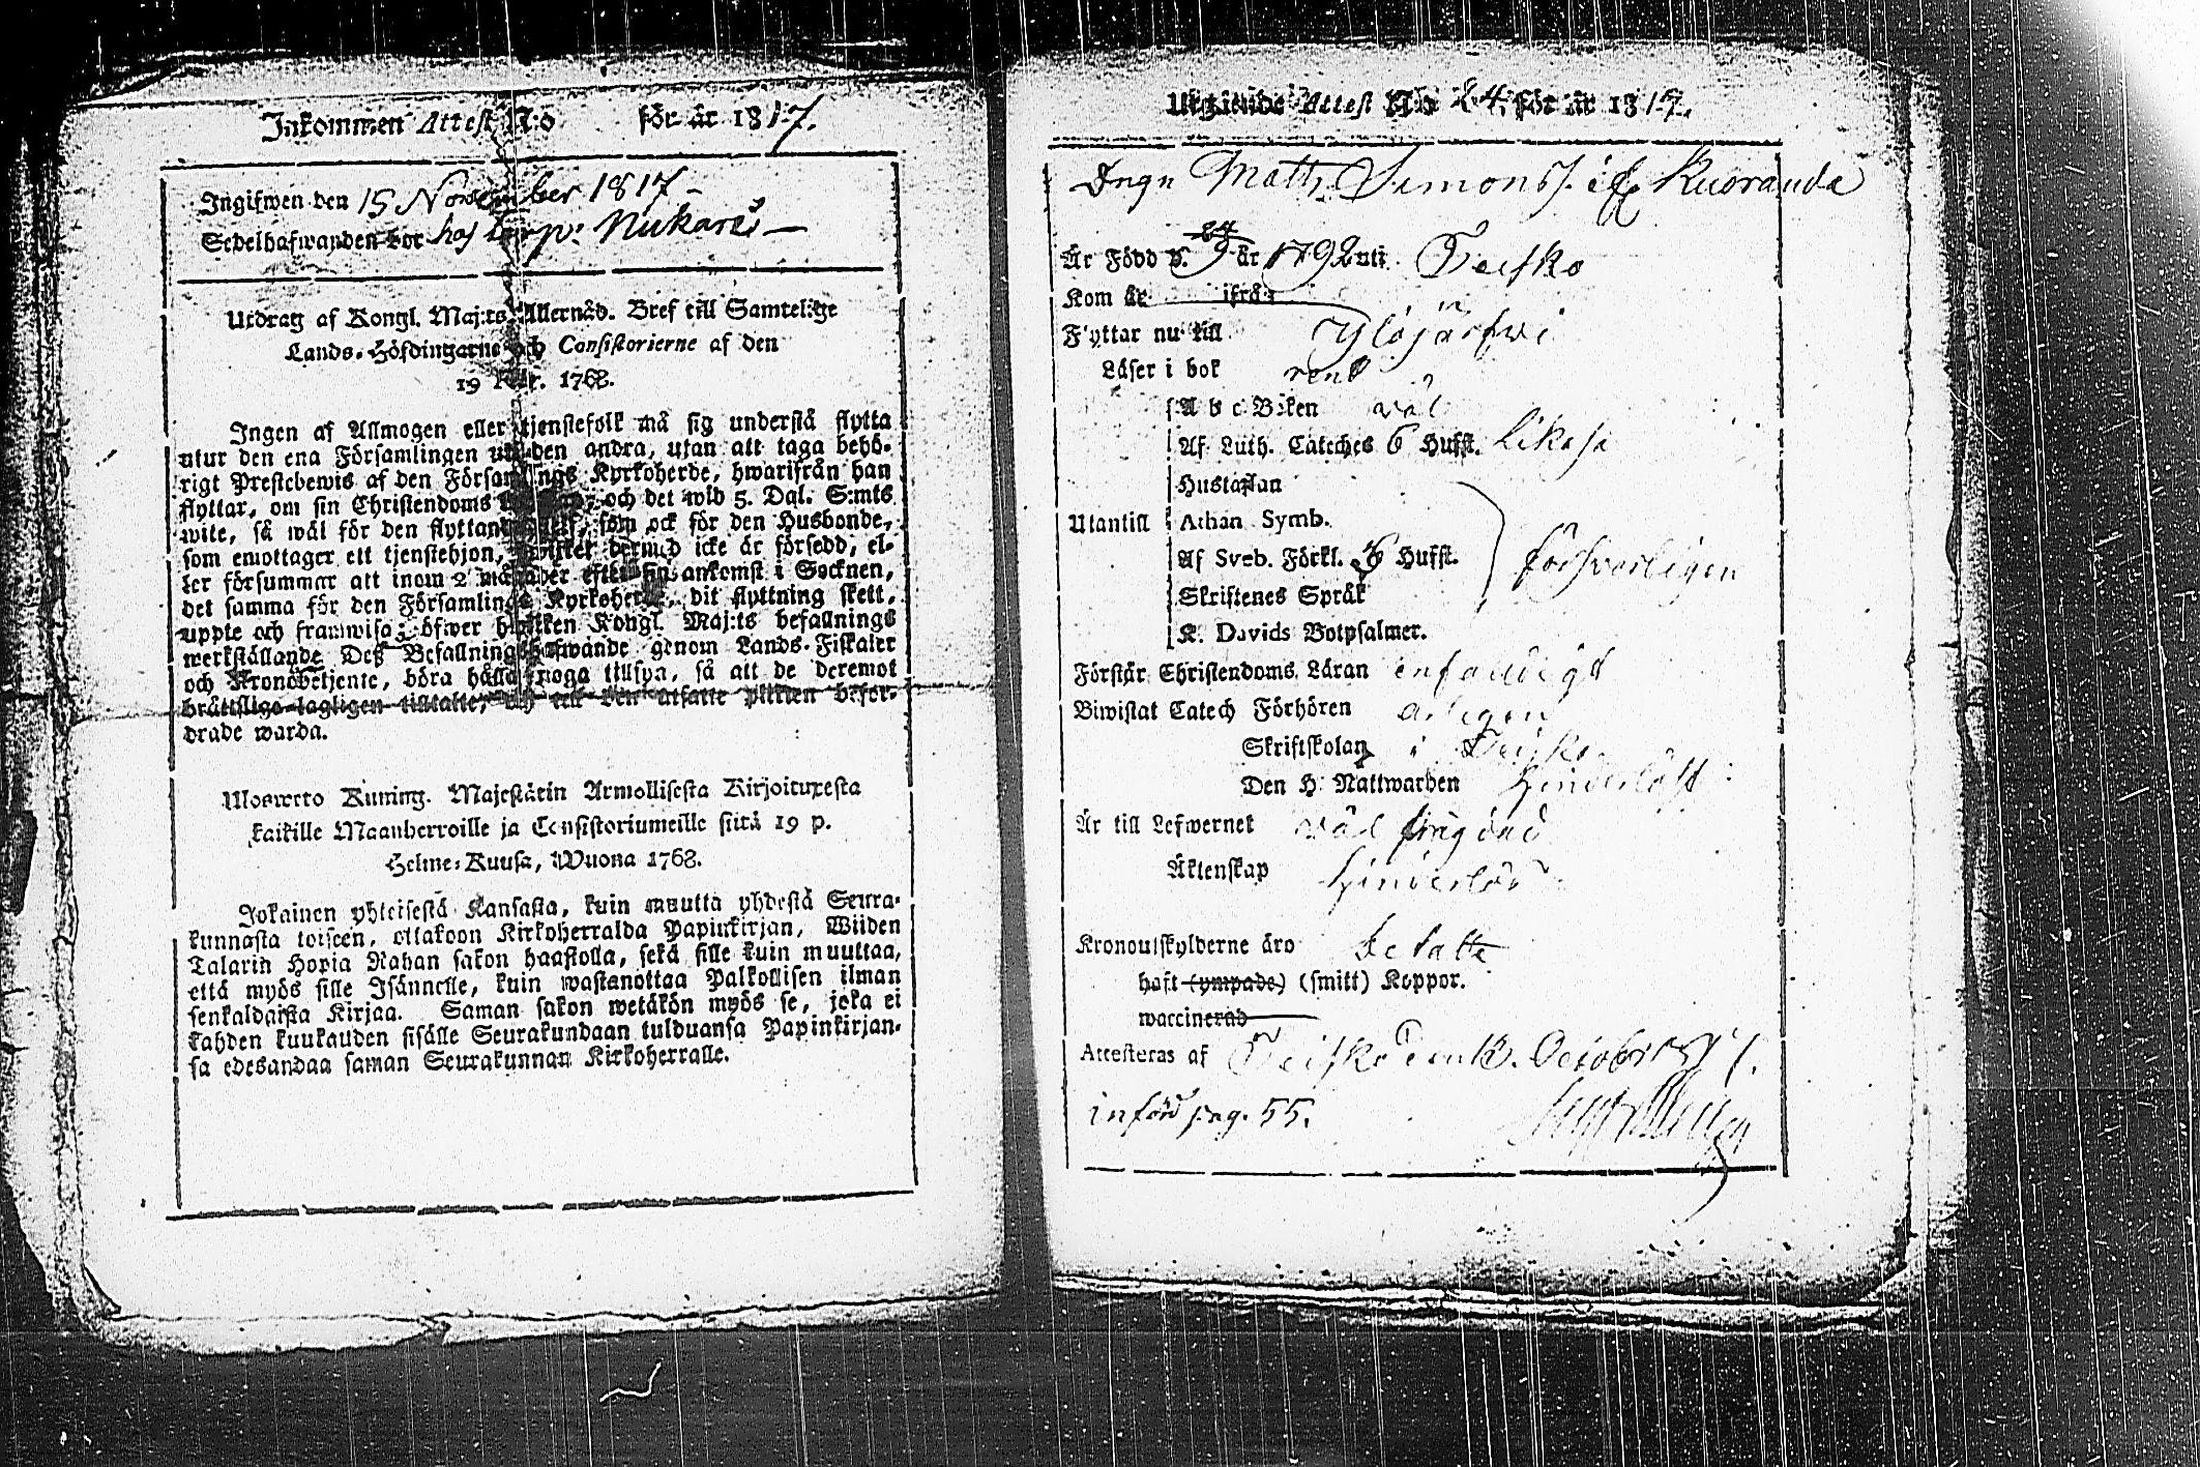 Inkommen Attest N:o för år 1817.
Ingifwen den 15 November 1817
Sedelhafwanden bor hos
Utdrag af Kongl. Maj:ts Allernåd. Bref till Samtelige
Lands-Höfdingarne och Consistorierne af den
19 Febr. 1768.
Ingen af Allmogen eller tjenstefolk må sig understå flytta
utur den ena Församlingen uti den andra, utan att taga behö-
rigt Prestebewis af den Församlings Kyrkoherde, hwarifrån han
flyttar, om sin Christendoms och det wid 5. Dal. S:mts
wite, så wäl för den flyttande som ock för den Husbonde,
som emottager ett tjenstehjon, hwilket dermed icke är försedd, el-
ler försummar att inom 2 månader efter sin ankomst i Socknen,
det samma för den Församlings Kyrkoherde, dit flyttning skett,
uppte och framwisa; öfwer hwilken Kongl. Maj:ts befallnings
werkställande Deß Befallningshafwande genom Lands-Fiskaler
och Kronobetjente, böra hålla noga tillsyn, så att de deremot
brättslige lagligen tilltalte, och till den utsatte plikten befor-
drade warda.
Ulosweto Kuning. Majestätin Armollisesta Kirjoituxesta
kaikille Maanherroille ja Consistoriumeille siitä 19 p.
Helme-Kuusa, Wuona 1768.
Jokainen yhteisestä Kansasta, kuin muutta yhdestä Seura-
kunnasta toiseen, ottakoon Kirkoherralda Papinkirjan, Wiiden
Talarin Hopia Rahan sakon haastolla, sekä sille kuin muuttaa,
että myös sille Isännelle, kuin wastanottaa Palkollisen ilman
senkaldaista Kirjaa. Saman sakon wetäkön myös se, joka ei
kahden kuukauden sisälle Seurakundaan tulduansa Papinkirjan-
sa edesandaa saman Seurakunnan Kirkoherralle.
Utgående Attest N:o 64 för år 1817.
Drngn Matts Simonss. if Kuoranda
Är Född d. 24/9 år 1792 uti Teisko
Kom år ifrån
Flyttar nu till Ylöjärfwi
Läser i bok rent
A b c Boken wäl
Af Luth. Cateches 6 Hufst. likaså
Hustaflan
Utantill Athan. Symb.
Af Sveb. Förkl. 6 Hufst. försvarligen
Skriftenes Språk
K. Davids Botpsalmer.
Förstår Christendoms Läran enfaldigt
Biwistat Catech Förhören årligen
Skriftskolan i Teisko
Den H. Nattwarden hinderlöst
Är till Lefwernet wäl frägdad
Äktenskap hinderlös
Kronoutskylderne äro betalte
haft (ympade) (smitt) Koppor.
waccinerad
Attesteras af Teisko den 13. October 1817.
införd pag. 55.